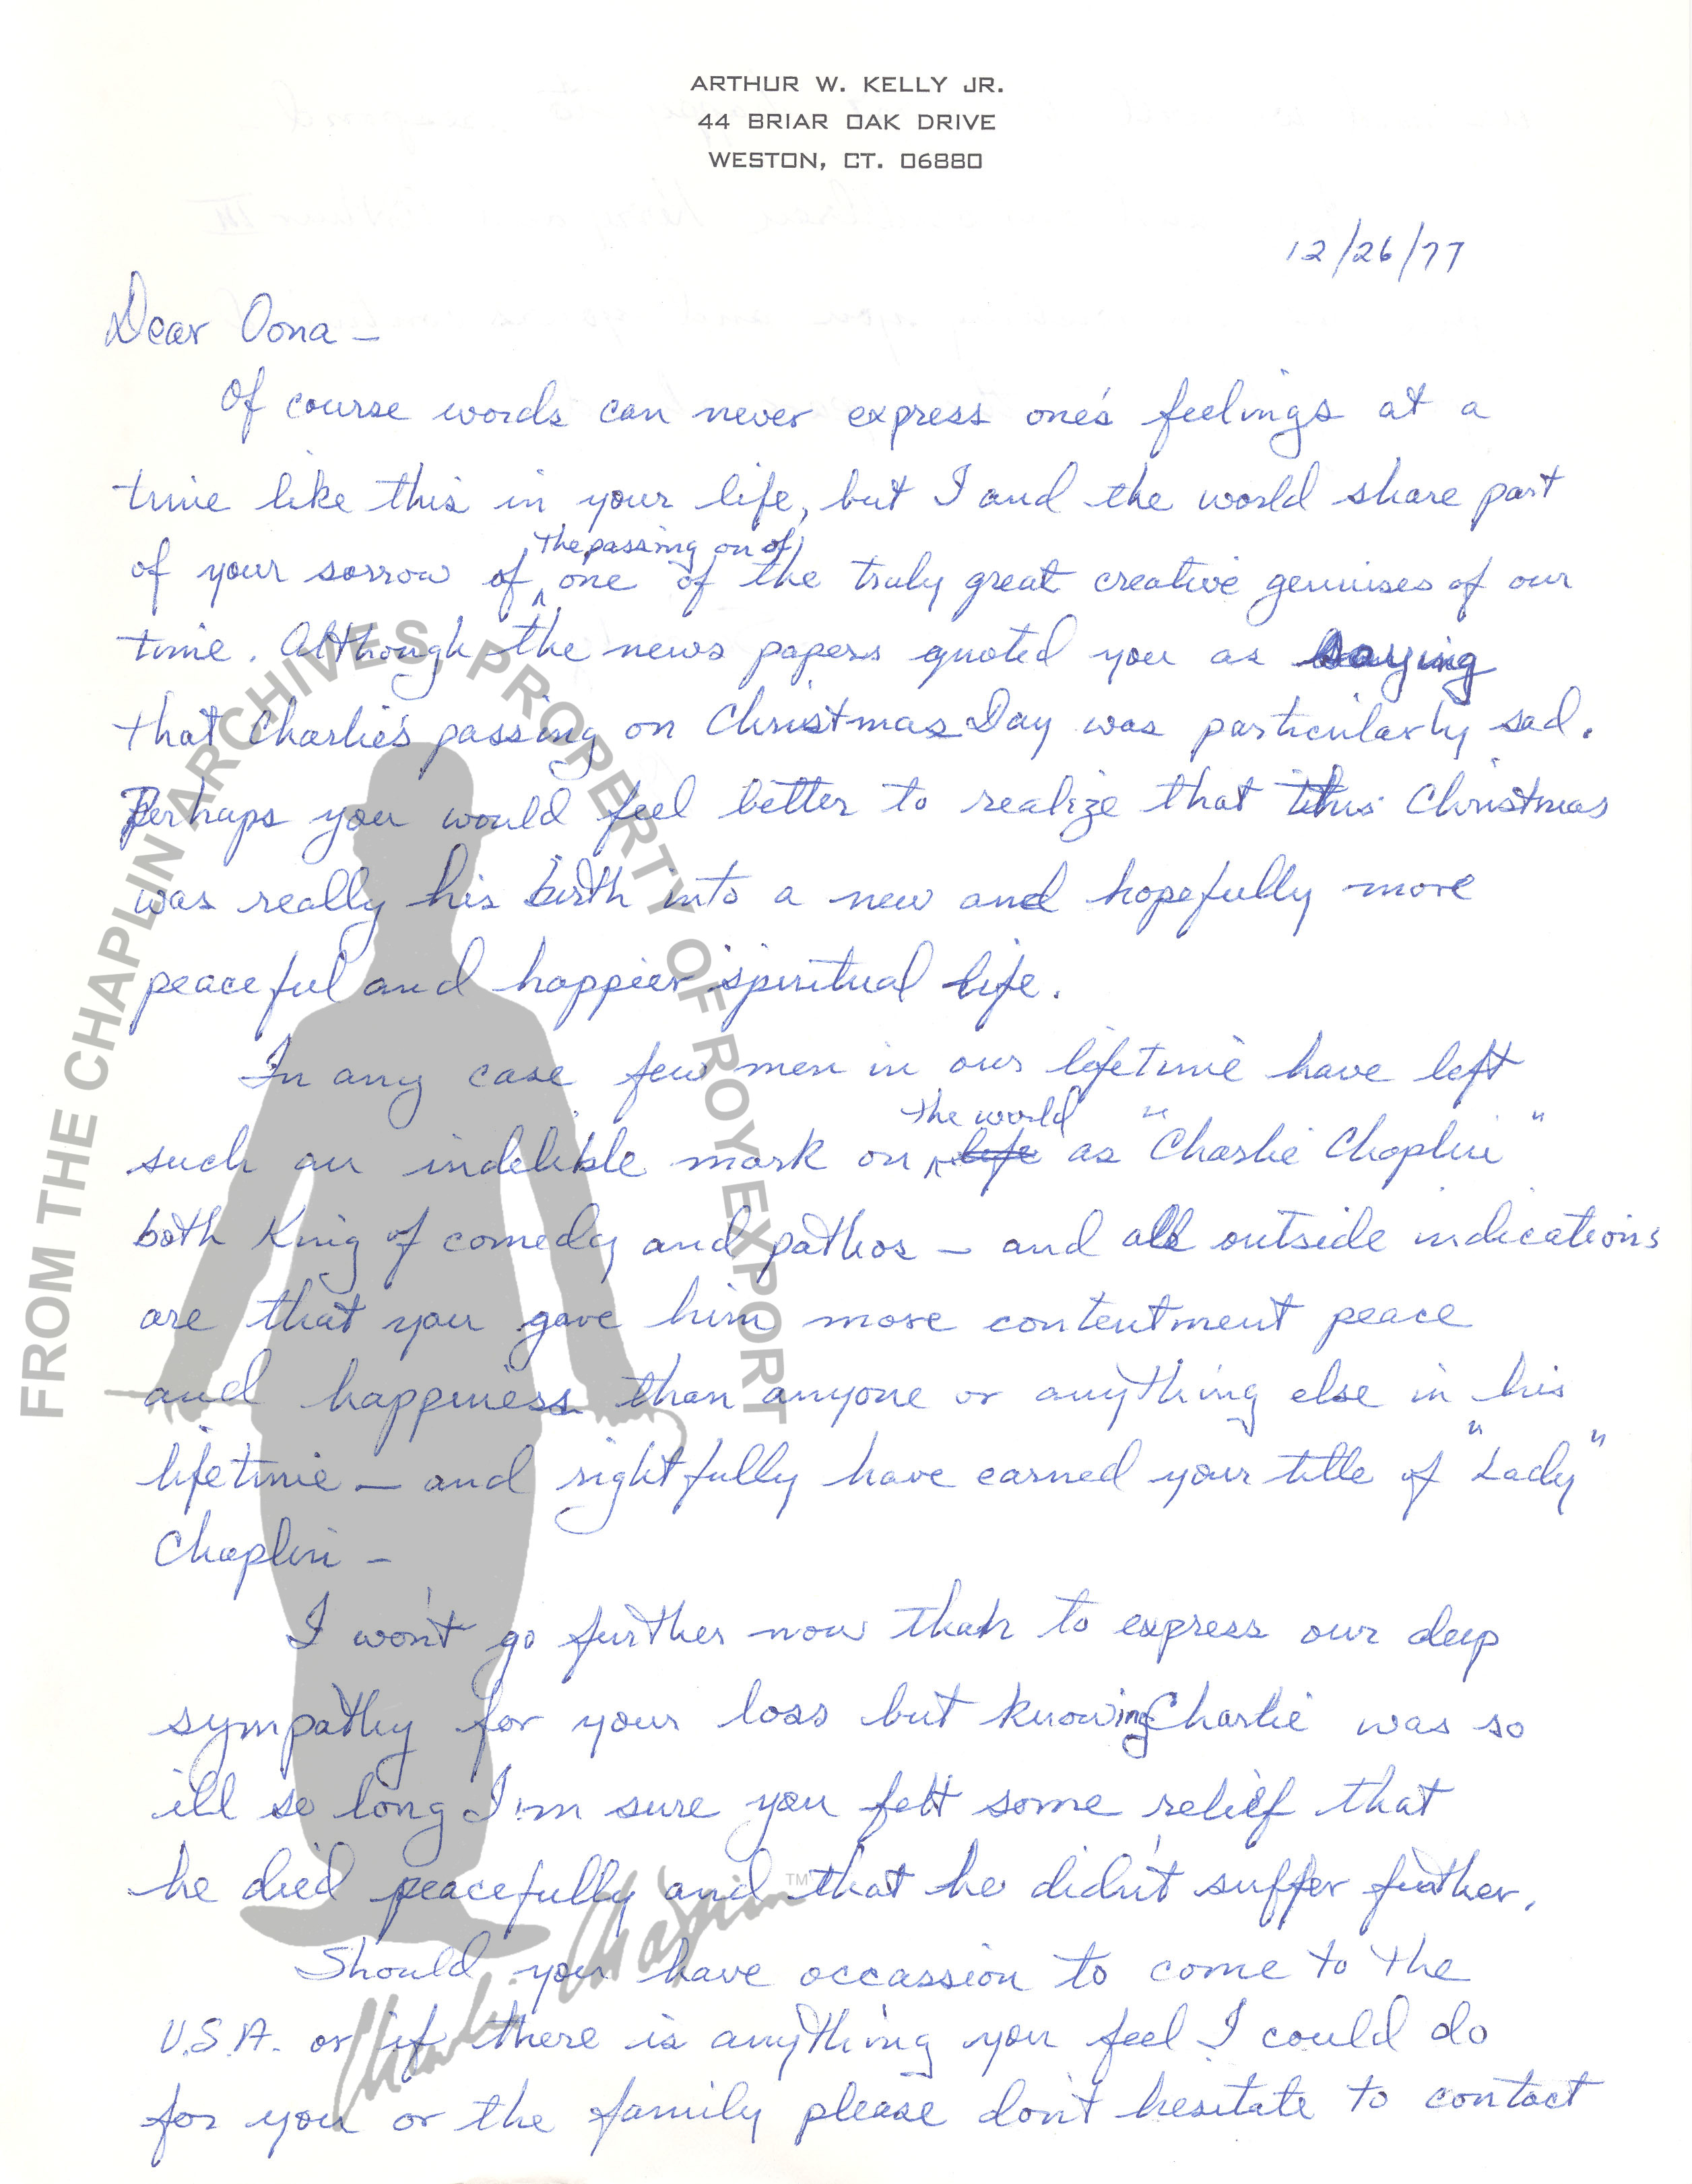 ARTHUR W. KELLY JR.
44 BRIAR OAK DRIVE
WESTON, CT. 06880
12/26/77
Dear Oona –
Of course words can never express one's feelings at a
time like this in your life, but I and the world share part
the passing on of
of your sorrow of one of the truly great creative geniuses of our
time. Although the news papers quoted you as saying
that Charlie's passing on Christmas Day was particularly sad.
Perhaps you would feel better to realize that this Christmas
was really his birth into a new and hopefully more
peaceful and happier spiritual life.
In any case few men in our lifetime have left
the world
such an indelible mark on life as "Charlie Chaplin"
both King of comedy and pathos – and all outside indications
are that you gave him more contentment peace
and happiness than anyone or anything else in his
lifetime – and rightfully have earned your title of "Lady"
Chaplin –
I won't go further now than to express our deep
sympathy for your loss but knowing Charlie was so
ill so long I'm sure you felt some relief that
he died peacefully and that he didn't suffer further.
Should you have occassion to come to the
U.S.A. or if there is anything you feel I could do
for you or the family please don't hesitate to contact
FROM THE CHAPLIN ARCHIVES, PROPERTY OF ROY EXPORT
Charlie Chaplin TM